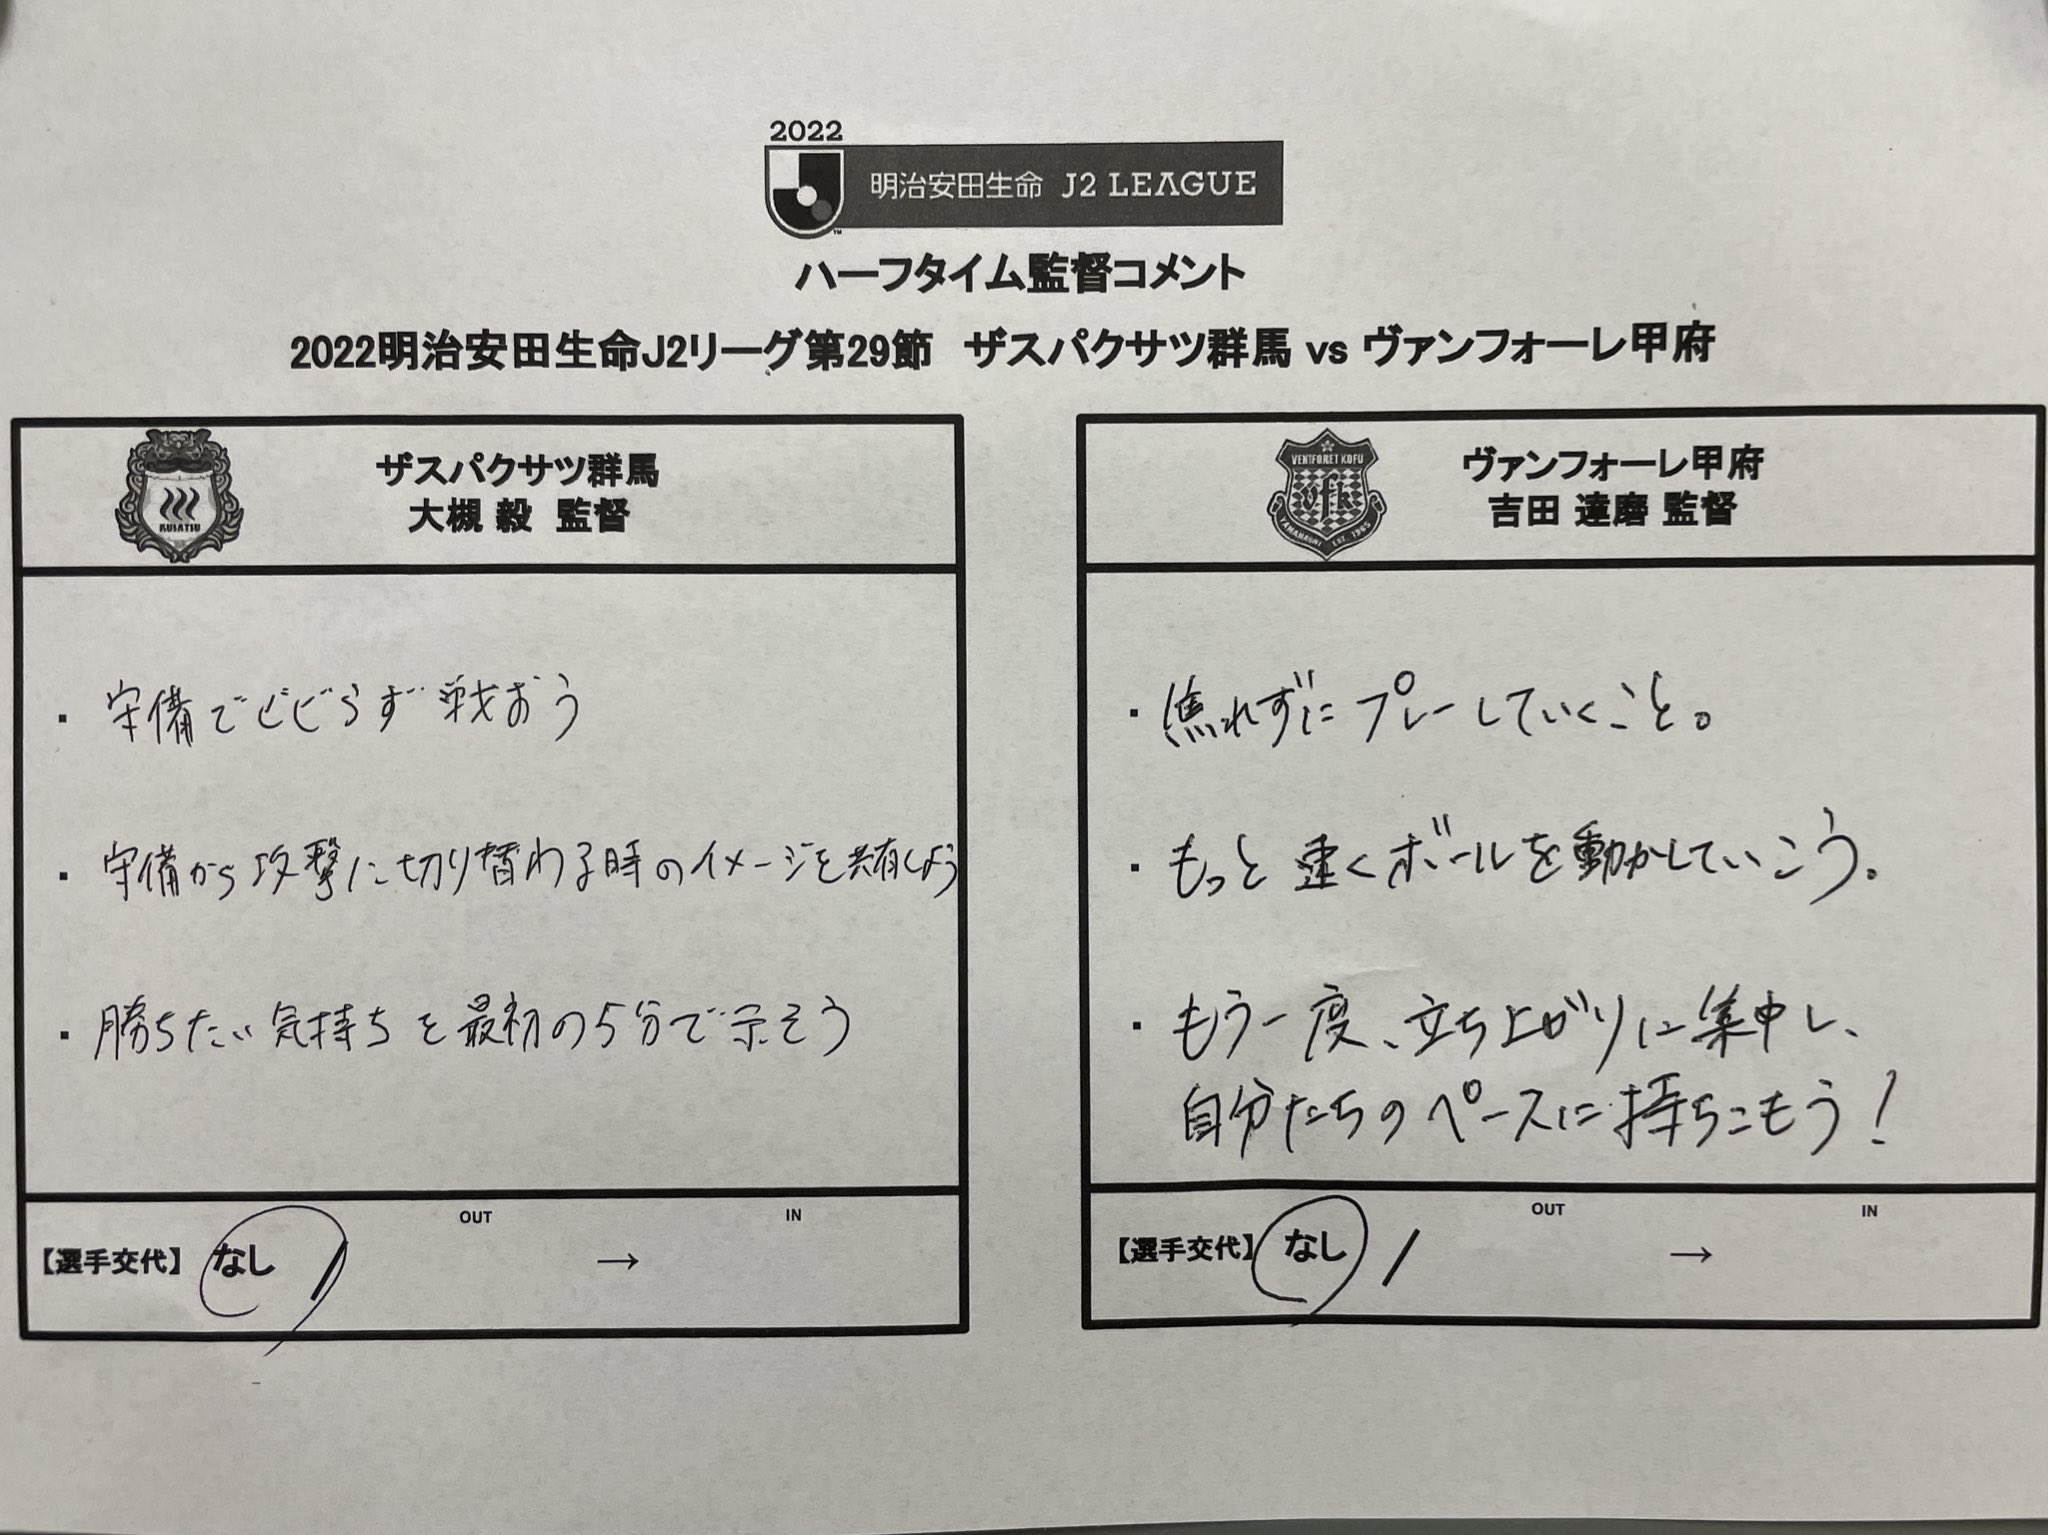 2022
明治安田生命 J2 LEAGUE
TM
ハーフタイム監督コメント
2022明治安田生命J2リーグ第29節 ザスパクサツ群馬 vs ヴァンフォーレ甲府
KUSATSU
ザスパクサツ群馬
大槻 毅 監督
・守備でビビらず戦おう
・守備から攻撃に切り替わる時のイメージを共有しよう
・勝ちたい気持ちを最初の5分で示そう
OUT IN
【選手交代】 なし / →
VENTFORET KOFU
vfk
YAMANASHI EST. 1965
ヴァンフォーレ甲府
吉田 達磨 監督
・焦れずにプレーしていくこと。
・もっと速くボールを動かしていこう。
・もう一度、立ち上がりに集中し、
自分たちのペースに持ちこもう!
OUT IN
【選手交代】 なし / →